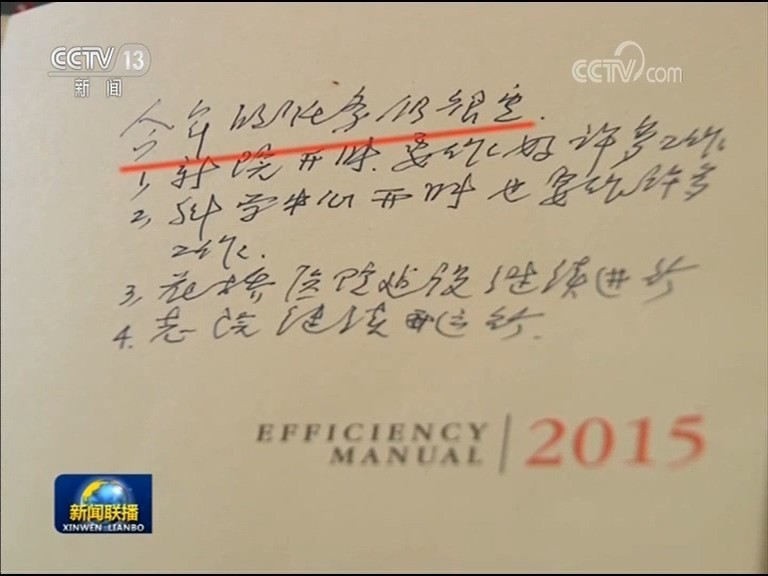 CCTV 13
新闻
CCTV.com
今年的任务仍很重.
1, 新院开时.要作好许多工作
2, 科学中心开时也要作许多
工作.
3, 危险段继续进行
4. 总院继续运行.
EFFICIENCY
MANUAL
2015
新闻联播
XINWEN LIANBO